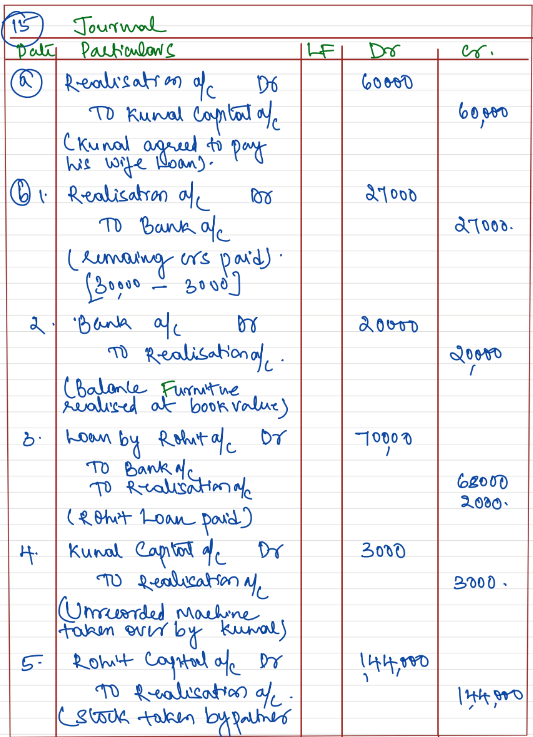 15 Journal
Date Particulars LF Dr Cr.
a Realisation a/c Dr 60000
To Kunal Capital a/c 60,000
(Kunal agreed to pay
his wife Loan).
b 1. Realisation a/c Dr 27000
To Bank a/c 27000.
(remaing crs paid).
[30,000 - 3000]
2. Bank a/c Dr 20000
To Realisation a/c. 20,000
(Balance Furnitue
realised at book value)
3. Loan by Rohit a/c Dr 70,000
To Bank a/c 68000
To Realisation a/c 2000.
(Rohit Loan paid)
4. Kunal Capital a/c Dr 3000
To Realisation a/c 3000.
(Unrecorded Machine
taken over by Kunal)
5. Rohit Capital a/c Dr 1,44,000
To Realisation a/c. 1,44,000
(Stock taken by partner